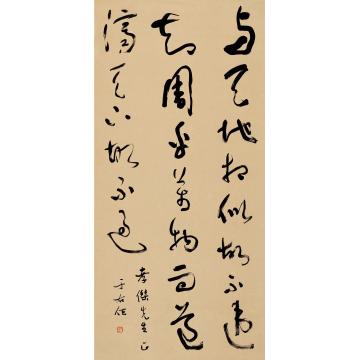 与天地相似故不违
知周乎万物而道
济天下故不过
孝傑先生正
于右任